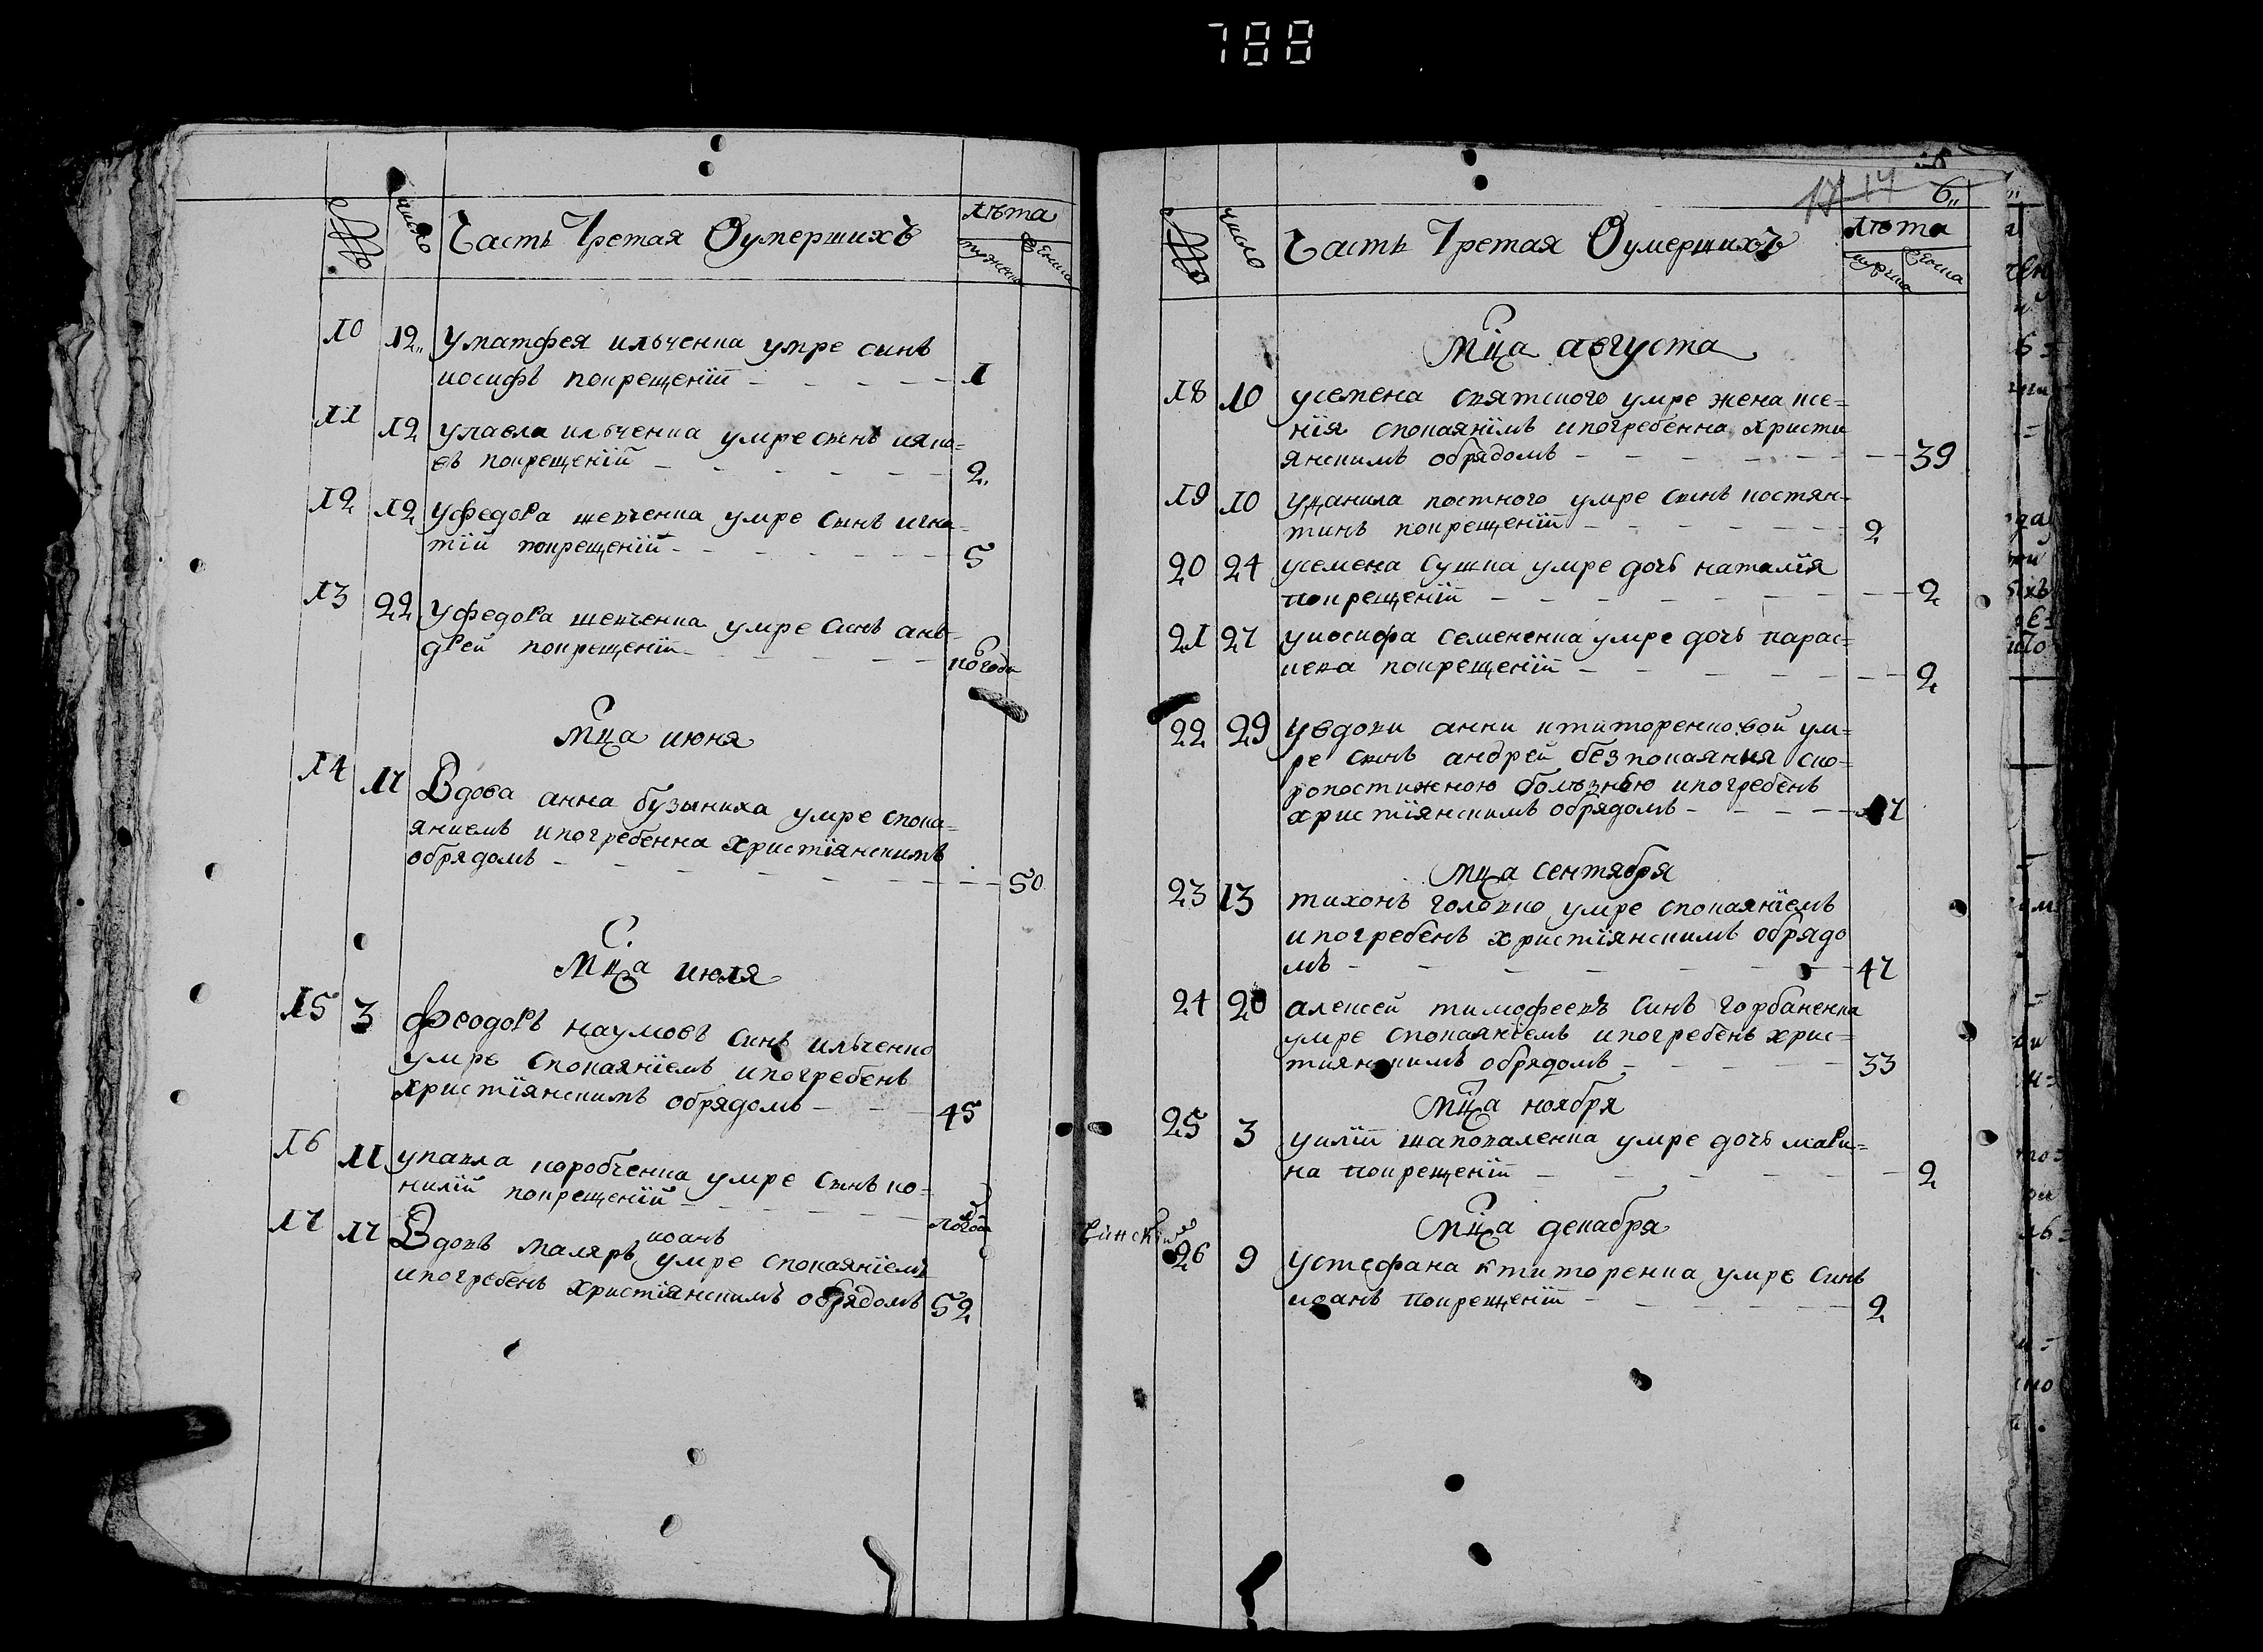 788
№ число Часть Третая Оумершихъ лѣта
мужеска женска
10 12 у матфея ильченка умре синъ
иосифъ покрещенїй 1
11 12 у павла ильченка умре синъ иако=
въ покрещенїй 2
12 12 у федора шевченка умре синъ игна=
тїй покрещенїй 5
13 22 у федора шевченка умре синъ анъ=
дрей покрещенїй погода
Мца июня
14 17 Вдова анна бузыниха умре спока=
яниемъ ипогребенна христїянскимъ
обрядомъ 50
Мца июля
15 3 феодоръ наумовъ синъ ильченко
умре спокаянїемъ ипогребенъ
христїянскимъ обрядомъ 45
16 11 у павла коробченка умре синъ ко=
нилїй покрещенїй погода
иоанъ
17 17 Вдовъ маляръ умре спокаянїемъ
ипогребенъ христїянскимъ обрядомъ 52
17 14 6
№ число Часть Третая Оумершихъ лѣта
мужеска женска
Мца августа
18 10 у семена святского умре жена ксе=
нїя спокаянїмъ ипогребенна христи
янскимъ обрядомъ 39
19 10 у данила постного умре синъ костян=
тинъ покрещенїй 2
20 24 у семена сушка умре дочь наталїя
покрещенїй 2
21 27 у иосифа семененка умре дочь парас=
кева покрещенїй 2
22 29 у вдови анни ктиторенковой ум=
ре синъ андрей безпокаяния ско=
ропостижною болѣзнѣю ипогребенъ
христїянскимъ обрядомъ 17
Мца сентября
23 13 тихонъ головко умре спокаянїемъ
ипогребенъ христїянскимъ обрядо
мъ 47
24 20 алексей тимофеевъ синъ горбаненка
умре спокаянїемъ ипогребенъ хрис=
тиянскимъ обрядомъ 33
Мца ноября
25 3 у илїи шаповаленка умре дочь мари=
на покрещенїй 2
Мца декабря
26 9 у стефана ктиторенка умре синъ
иоанъ покрещенїй 2